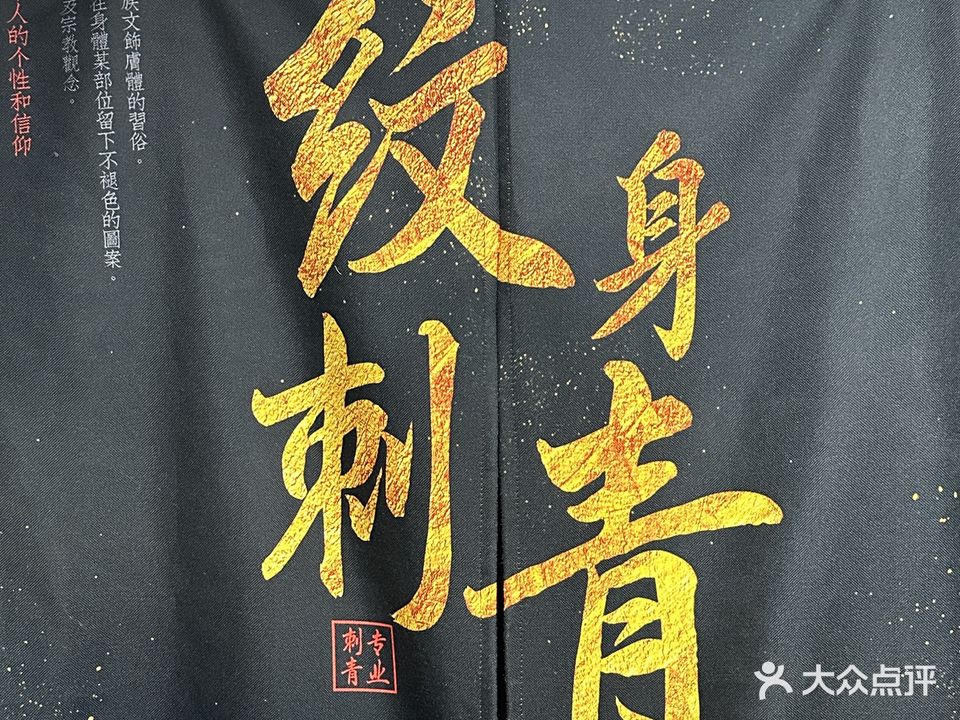 纹身
刺青
专业
刺青
族文飾膚體的習俗。
在身體某部位留下不褪色的圖案。
及宗教觀念。
人的个性和信仰
大众点评